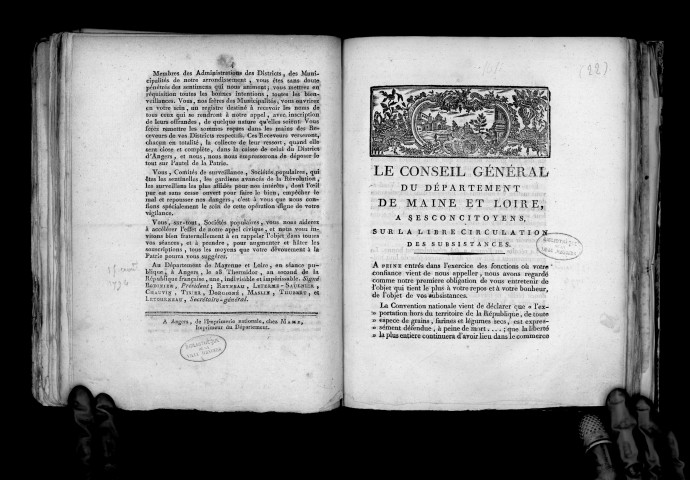 4
Membres des Administrations des Districts, des Muni-
cipalités de notre arrondissement, vous êtes sans doute
pénétrés des sentimens qui nous animent; vous mettrez en
réquisition toutes les bonnes intentions, toutes les bien-
veillances. Vous, nos frères des Municipalités, vous ouvrirez
en votre sein, un registre destiné à recevoir les noms de
tous ceux qui se rendront à notre appel, avec inscription
de leurs offrandes, de quelque nature qu'elles soient. Vous
ferez remettre les sommes reçues dans les mains des Re-
ceveurs de vos Districts respectifs. Ces Receveurs verseront,
chacun en totalité, la collecte de leur ressort, quand elle
sera close et complète, dans la caisse de celui du District
d'Angers, et nous, nous nous empresserons de déposer le
tout sur l'autel de la Patrie.
Vous, Comités de surveillance, Sociétés populaires, qui
êtes les sentinelles, les gardiens avancés de la Révolution,
les surveillans les plus affidés pour nos intérêts, dont l'œil
pur est sans cesse ouvert pour faire le bien, empêcher le
mal et repousser nos dangers, c'est à vous que nous con-
fions spécialement le soin de cette opération digne de votre
vigilance.
Vous, sur-tout, Sociétés populaires, vous nous aiderez
à accélérer l'effet de notre appel civique, et nous vous in-
vitons bien fraternellement à en rappeler l'objet dans toutes
vos séances, et à prendre, pour augmenter et hâter les
souscriptions, tous les moyens que votre dévouement à la
Patrie pourra vous suggérer.
Au Département de Mayenne et Loire, en séance pu-
blique, à Angers, le 28 Thermidor, an second de la
République française, une, indivisible et impérissable. Signé
Président;
Secrétaire-général.
A Angers, de l'Imprimerie nationale, chez MAME,
Imprimeur du Département.
(22)
LE CONSEIL GÉNÉRAL
DU DÉPARTEMENT
DE MAINE ET LOIRE,
A SES CONCITOYENS,
SUR LA LIBRE CIRCULATION
DES SUBSISTANCES.
A PEINE entrés dans l'exercice des fonctions où votre
confiance vient de nous appeller, nous avons regardé
comme notre première obligation de vous entretenir de
l'objet qui tient le plus à votre repos et à votre bonheur,
de l'objet de vos subsistances.
La Convention nationale vient de déclarer que « l'ex-
» portation hors du territoire de la République, de toute
» espece de grains, farines et légumes secs, est expres-
» sément défendue, à peine de mort....; que la liberté
» la plus entiere continuera d'avoir lieu dans le commerce